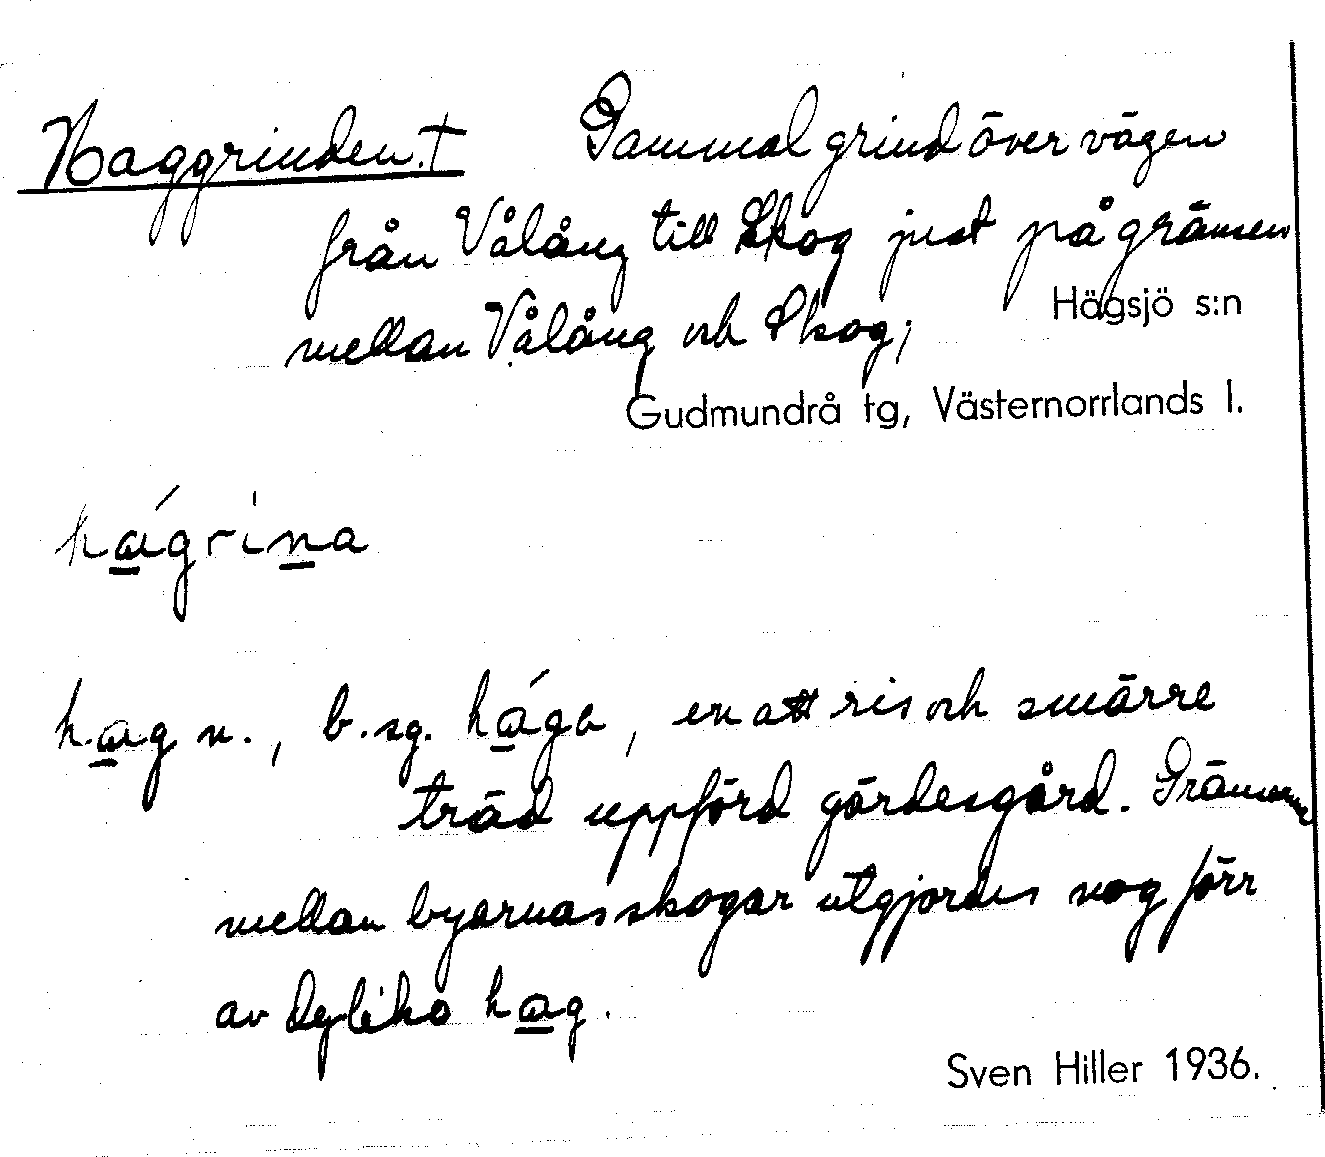 Haggrinden.† Gammal grind över vägen
från Vålång till Skog just på gränsen
Högsjö s:n
mellan Vålång och Skog;
Gudmundrå tg, Västernorrlands l.
hágrina
hag n., b.sg. hága, en att ris och smärre
träd uppförd gärdesgård. Gränserna
mellan byarnas skogar utgjordes nog förr
av dylika hag.
Sven Hiller 1936.